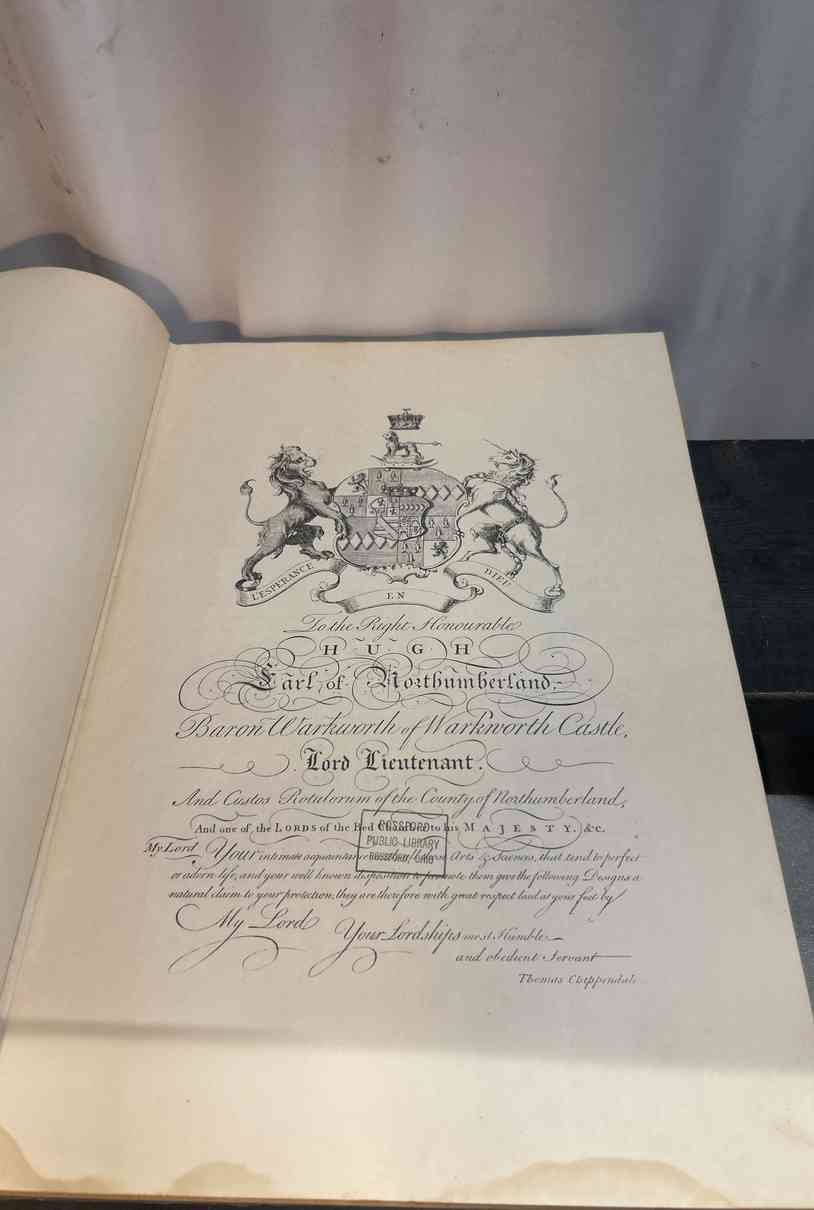 L'ESPERANCE EN DIEU
To the Right Honourable
HUGH
Earl of Northumberland,
Baron Warkworth of Warkworth Castle,
Lord Lieutenant,
And Custos Rotulorum of the County of Northumberland,
And one of the LORDS of the Bed Chamber to his MAJESTY, &c.
My Lord, Your intimate acquaintance with all those Arts & Sciences, that tend to perfect
or adorn life, and your well known disposition to promote them give the following Designs a
natural claim to your protection; they are therefore with great respect laid at your feet by
My Lord
Your Lordships most Humble
and obedient Servant
Thomas Chippendale.
ROSSFORD
PUBLIC LIBRARY
ROSSFORD, OHIO